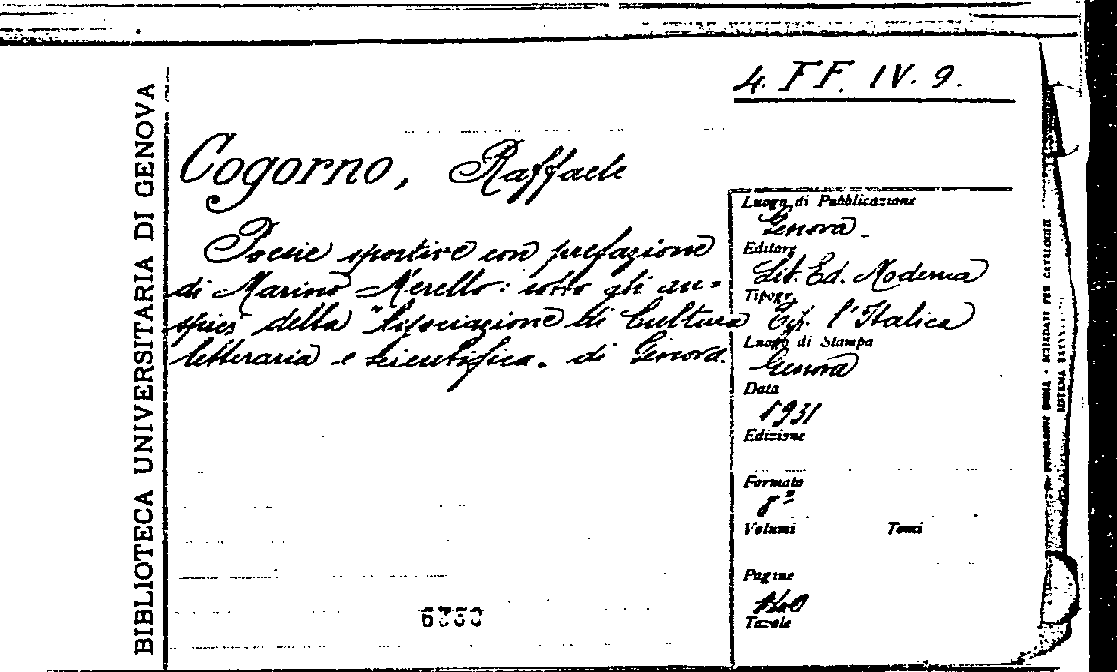 4. FF. IV. 9.
BIBLIOTECA UNIVERSITARIA DI GENOVA
Cogorno, Raffaele
Poesie sportive con prefazione
di Marino Merello: sotto gli au-
spici della "Associazione di Cultura
letteraria e scientifica. di Genova.
Luogo di Pubblicazione
Genova.
Editore
Lib. Ed. Moderna
Tipogr.
Tip. l'Italica
Luogo di Stampa
Genova
Data
1931
Edizione
Formato
8º
Volumi Tomi
Pagine
Tavole
SCHEDATI PER CATALOGHI
SISTEMA